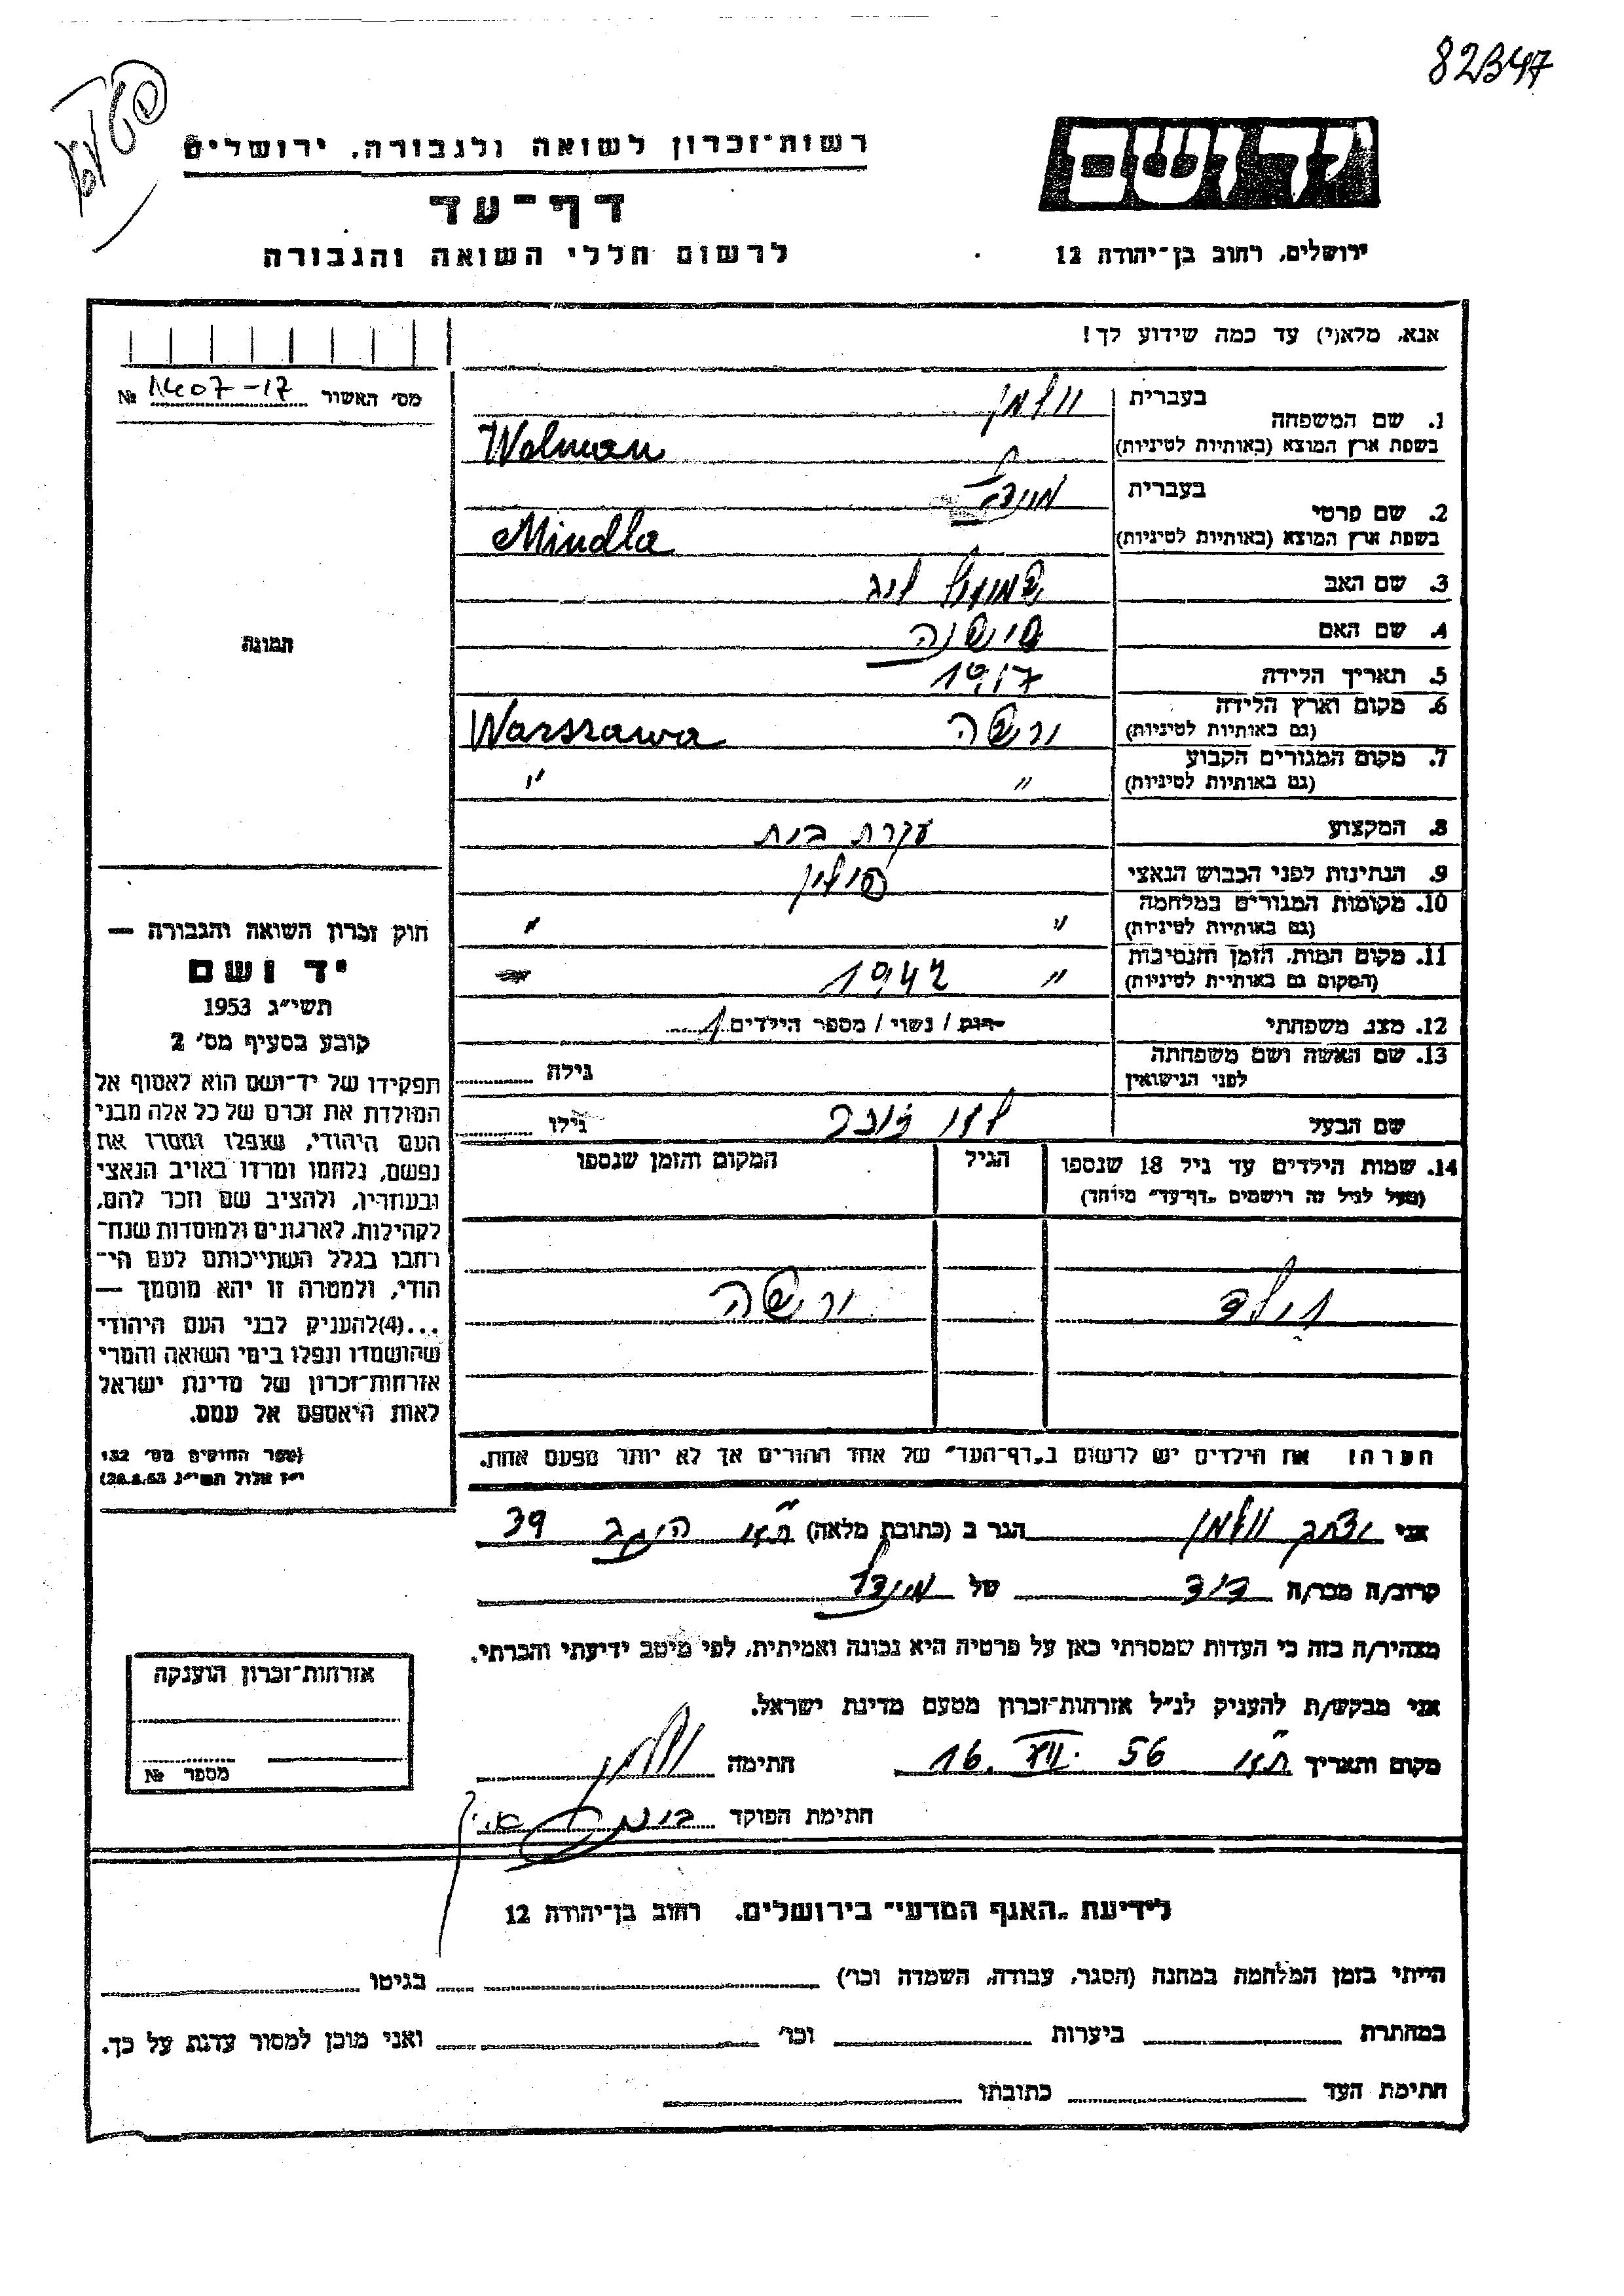 82B47
יד ושם
רשות־זכרון לשואה ולגבורה, ירושלים
דף־עד
לרשום חללי השואה והגבורה
ירושלים, רחוב בן־יהודה 12
אנא, מלא(י) עד כמה שידוע לך!
מס׳ האשור № 1407-17
1. שם המשפחה
בעברית וולמן
בשפת ארץ המוצא (באותיות לטיניות) Wolman
2. שם פרטי
בעברית
בשפת ארץ המוצא (באותיות לטיניות) Mindla
3. שם האב שמואל
4. שם האם
5. תאריך הלידה 1917
6. מקום וארץ הלידה
(גם באותיות לטיניות) ורשה Warszawa
7. מקום המגורים הקבוע
(גם באותיות לטיניות) " "
8. המקצוע עקרת בית
9. הנתינות לפני הכבוש הנאצי פולין
10. מקומות המגורים במלחמה
(גם באותיות לטיניות) " "
11. מקום המות, הזמן והנסיבות
(המקום גם באותיות לטיניות) " 1942
12. מצב משפחתי רווק / נשוי / מספר הילדים 1
13. שם האשה ושם משפחתה
לפני הנישואין גילה
שם הבעל גילו
14. שמות הילדים עד גיל 18 שנספו הגיל המקום והזמן שנספו
(מעל לגיל זה רושמים „דף־עד" מיוחד)
ורשה
הערה: את הילדים יש לרשום ב„דף־העד" של אחד ההורים אך לא יותר מפעם אחת.
תמונה
חוק זכרון השואה והגבורה —
יד ושם
תשי״ג 1953
קובע בסעיף מס׳ 2
תפקידו של יד־ושם הוא לאסוף אל
המולדת את זכרם של כל אלה מבני
העם היהודי, שנפלו ומסרו את
נפשם, נלחמו ומרדו באויב הנאצי
ובעוזריו, ולהציב שם וזכר להם,
לקהילות, לארגונים ולמוסדות שנח־
רבו בגלל השתייכותם לעם הי־
הודי, ולמטרה זו יהא מוסמך —
...(4) להעניק לבני העם היהודי
שהושמדו ונפלו בימי השואה והמרי
אזרחות־זכרון של מדינת ישראל
לאות היאספם אל עמם.
(ספר החוקים מס׳ 132
י״ז אלול תשי״ג 28.8.53)
אני יצחק וולמן הגר ב (כתובת מלאה) ת״א 39
קרוב/ה מכר/ה דוד של
מצהיר/ה בזה כי העדות שמסרתי כאן על פרטיה היא נכונה ואמיתית, לפי מיטב ידיעתי והכרתי.
אני מבקש/ת להעניק לנ״ל אזרחות־זכרון מטעם מדינת ישראל.
מקום ותאריך ת״א 16. VII. 56 חתימה וולמן
חתימת הפוקד
אזרחות־זכרון הוענקה
מספר №
לידיעת „האגף המדעי" בירושלים, רחוב בן־יהודה 12
הייתי בזמן המלחמה במחנה (הסגר, עבודה, השמדה וכו׳) בגיטו
במחתרת ביערות וכו׳ ואני מוכן למסור עדות על כך.
חתימת העד כתובתו